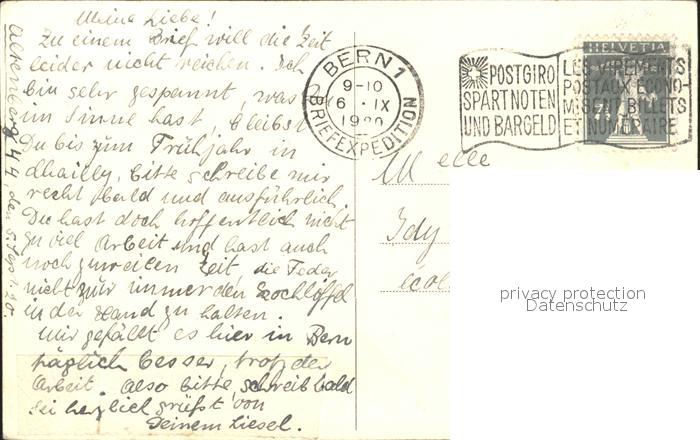 Meine Liebe!
Zu einem Brief will die Zeit
leider nicht reichen. Ich
bin sehr gespannt, was Du
im Sinne hast, bleibst
Du bis zum Frühjahr in
Chailly, bitte schreibe mir
recht bald und ausführlich.
Du hast doch hoffentlich nicht
zu viel Arbeit und hast auch
noch zuweilen Zeit, die Feder
nicht nur immer den Kochlöffel
in der Hand zu halten.
Mir gefällt es hier in Bern
täglich besser, trotz der
Arbeit. Also bitte, schreib bald
sei herzlich grüßt von
Deinem Liesel.
Altenberg 44, den 5. Sept.
BERN 1
9-10
6 . IX
BRIEFEXPEDITION
POSTGIRO
SPART NOTEN
UND BARGELD
LES VIREMENTS
POSTAUX ECONO-
MISENT BILLETS
ET NUMERAIRE
HELVETIA
7½
Melle
Idy
écol
privacy protection
Datenschutz